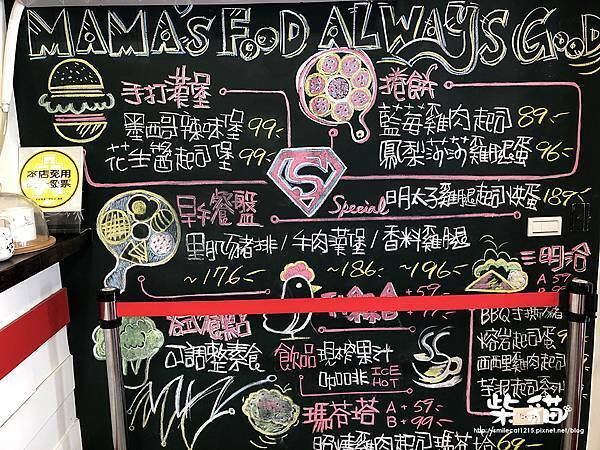 MAMA'S FOOD ALWAYS GOOD
手打漢堡
墨西哥辣味堡 99.-
花生醬起司堡 99.-
捲餅
藍莓雞肉起司 89.-
鳳梨莎莎雞腿蛋 96.-
S
Special 明太子雞腿起司烘蛋 189.-
本店免用
統一發票
早午餐盤
里肌豬排/牛肉漢堡/香料雞腿
~176.- ~186.- ~196.-
三明治
A + 59
BBQ手撕豬
熔岩起司蛋
西西里雞肉起司
+ 57.-
可調整素食
飲品 現榨果汁
咖啡 ICE HOT
瑪芬塔 A + 59.-
B + 99.-
起司瑪芬塔 69.-
柴貓
http://smilecat1215.pixnet.net/blog